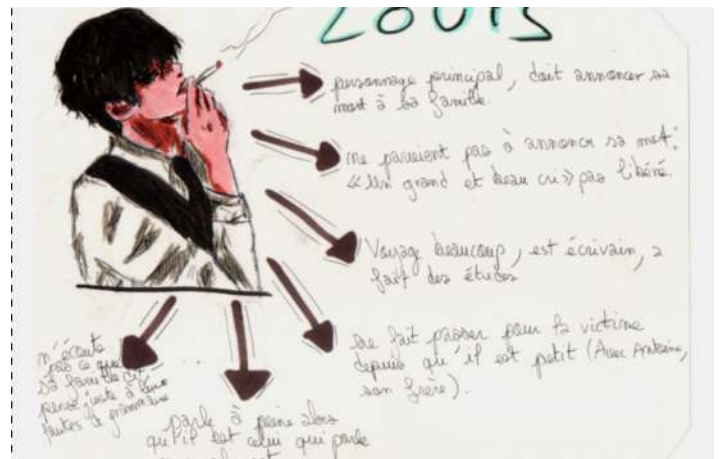 LOUIS
personnage principal, doit annoncer sa
mort à sa famille.
ne parvient pas à annoncer sa mort:
«Un grand et beau cri» pas libéré.
Voyage beaucoup, est écrivain, a
fait des études
se fait passer pour la victime
depuis qu'il est petit (Avec Antoine,
son frère).
n'écoute
pas ce que
sa famille dit
pense juste à leur
fautes de grammaire
parle à peine alors
qu'il est celui qui parle